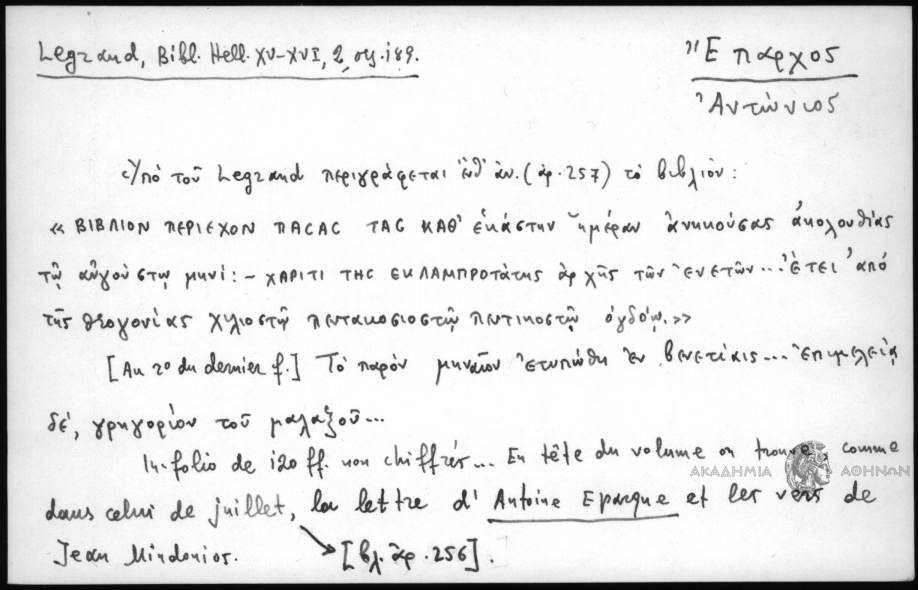 Legrand, Bibl. Hell. XV-XVI, 2, σς. 189.
Ἔπαρχος
Ἀντώνιος
Ὑπὸ τοῦ Legrand περιγράφεται ὑπ' ἀν. (ἀρ. 257) τὸ βιβλίον:
« ΒΙΒΛΙΟΝ ΠΕΡΙΕΧΟΝ ΠΑCΑC ΤΑC ΚΑΘ' ἑκάστην ἡμέραν ἀνηκούσας ἀκολουθίας
τῷ αὐγούστῳ μηνί: – ΧΑΡΙΤΙ ΤΗC ΕΚΛΑΜΠΡΟΤΆΤΗς ἀρχῆς τῶν Ἐνετῶν... Ἔτει ἀπὸ
τῆς θεογονίας χιλιοστῷ πεντακοσιοστῷ πεντικοστῷ ὀγδόῳ. »
[Au r⁰ du dernier f.] Τὸ παρὸν μηναῖον ἐτυπώθη ἐν βενετίαις... ἐπιμελείᾳ
δέ, γρηγορίου τοῦ μαλαξοῦ...
In-folio de 120 ff. non chiffrés... En tête du volume on trouve, comme
ΑΚΑΔΗΜΙΑ ΑΘΗΝΩΝ
dans celui de juillet, la lettre d' Antoine Eparque et les vers de
Jean Mindonios. [βλ. ἀρ. 256].